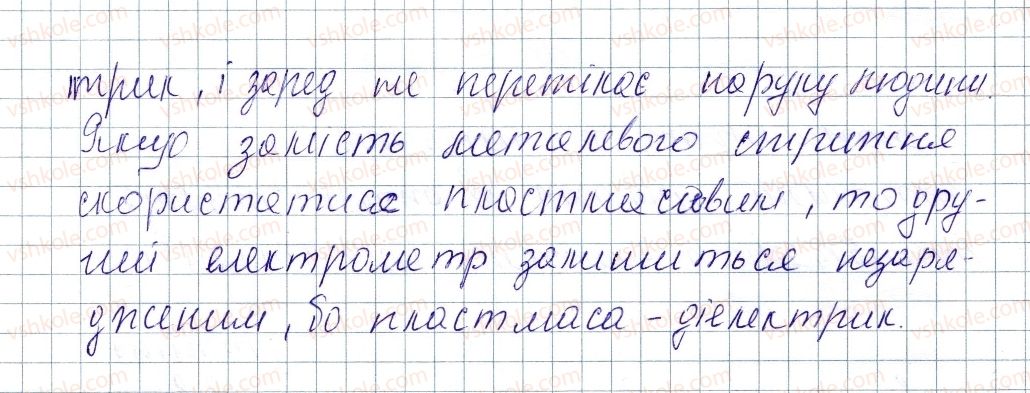 трик, і заряд не перетікає на руку людини.
Якщо замість металевого стрижня
скористатися пластмасовим, то дру-
гий електрометр залишиться незаря-
дженим, бо пластмаса - діелектрик.